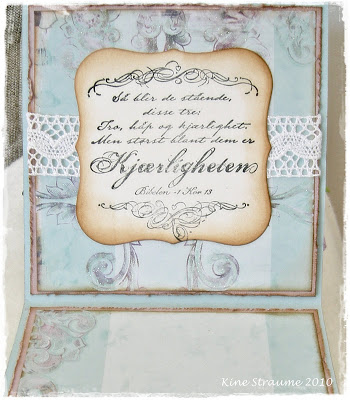 Så blir de stående,
disse tre:
Tro, håp og kjærlighet.
Men størst blant dem er
Kjærligheten
Bibelen - 1 Kor 13
Kine Straume 2010